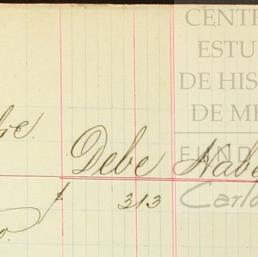 CENTR
ESTU
DE HIS
DE ME
Debe Habe
FUND
$ 313
Carlo